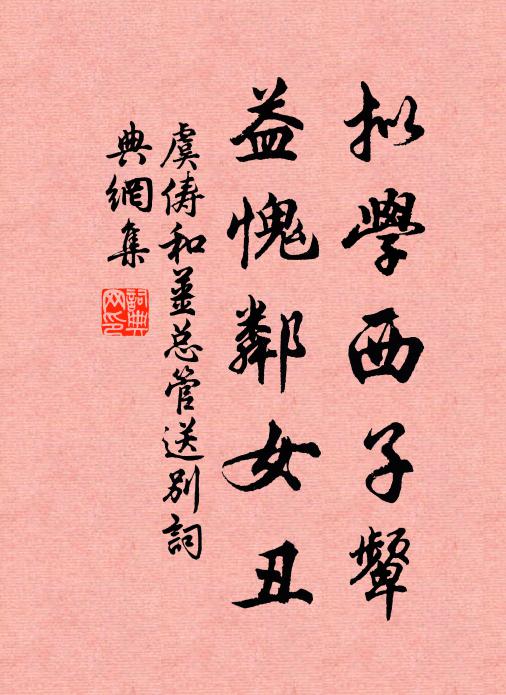 拟學西子颦
益愧鄰女丑
虞俦和姜总管送別詞
典網集
詞典网印